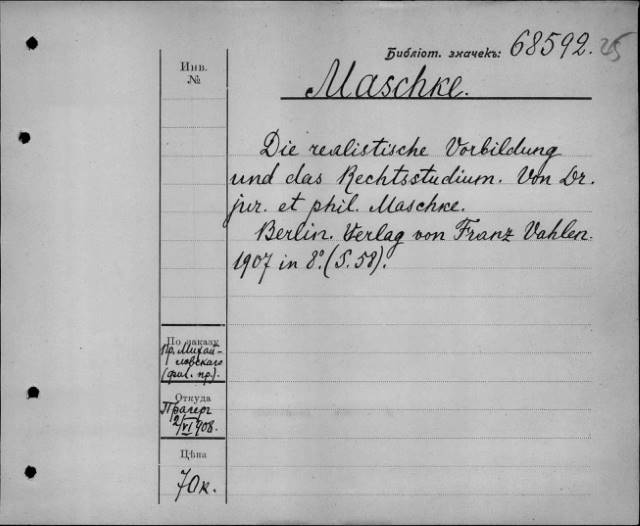 Инв.
№
Библіот. значекъ: 68592. 25
Maschke.
Die realistische Vorbildung
und das Rechtsstudium. Von Dr.
jur. et phil. Maschke.
Berlin. Verlag von Franz Vahlen.
1907 in 8º. (S. 58).
По заказу
Пр. Михай-
ловскаго
(фил. пр).
Откуда
Прагеръ
2/VI 908.
Цѣна
70 к.